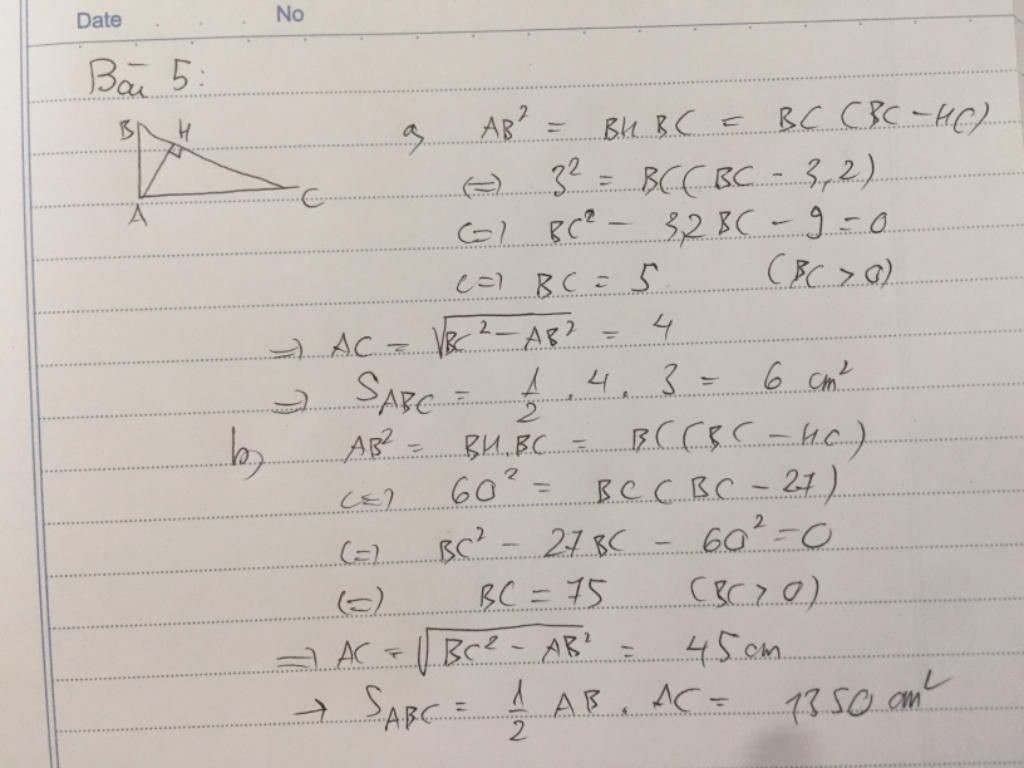 Date No
Bài 5:
B H
A C
a, AB² = BH BC = BC (BC - HC)
(=) 3² = BC (BC - 3,2)
(=) BC² - 3,2 BC - 9 = 0
(=) BC = 5 (BC > 0)
=) AC = √(BC² - AB²) = 4
=) S_ABC = 1/2 . 4 . 3 = 6 cm²
b) AB² = BH.BC = BC (BC - HC)
(=) 60² = BC (BC - 27)
(=) BC² - 27 BC - 60² = 0
(=) BC = 75 (BC > 0)
=) AC = √(BC² - AB²) = 45 cm
→ S_ABC = 1/2 AB . AC = 1350 cm²